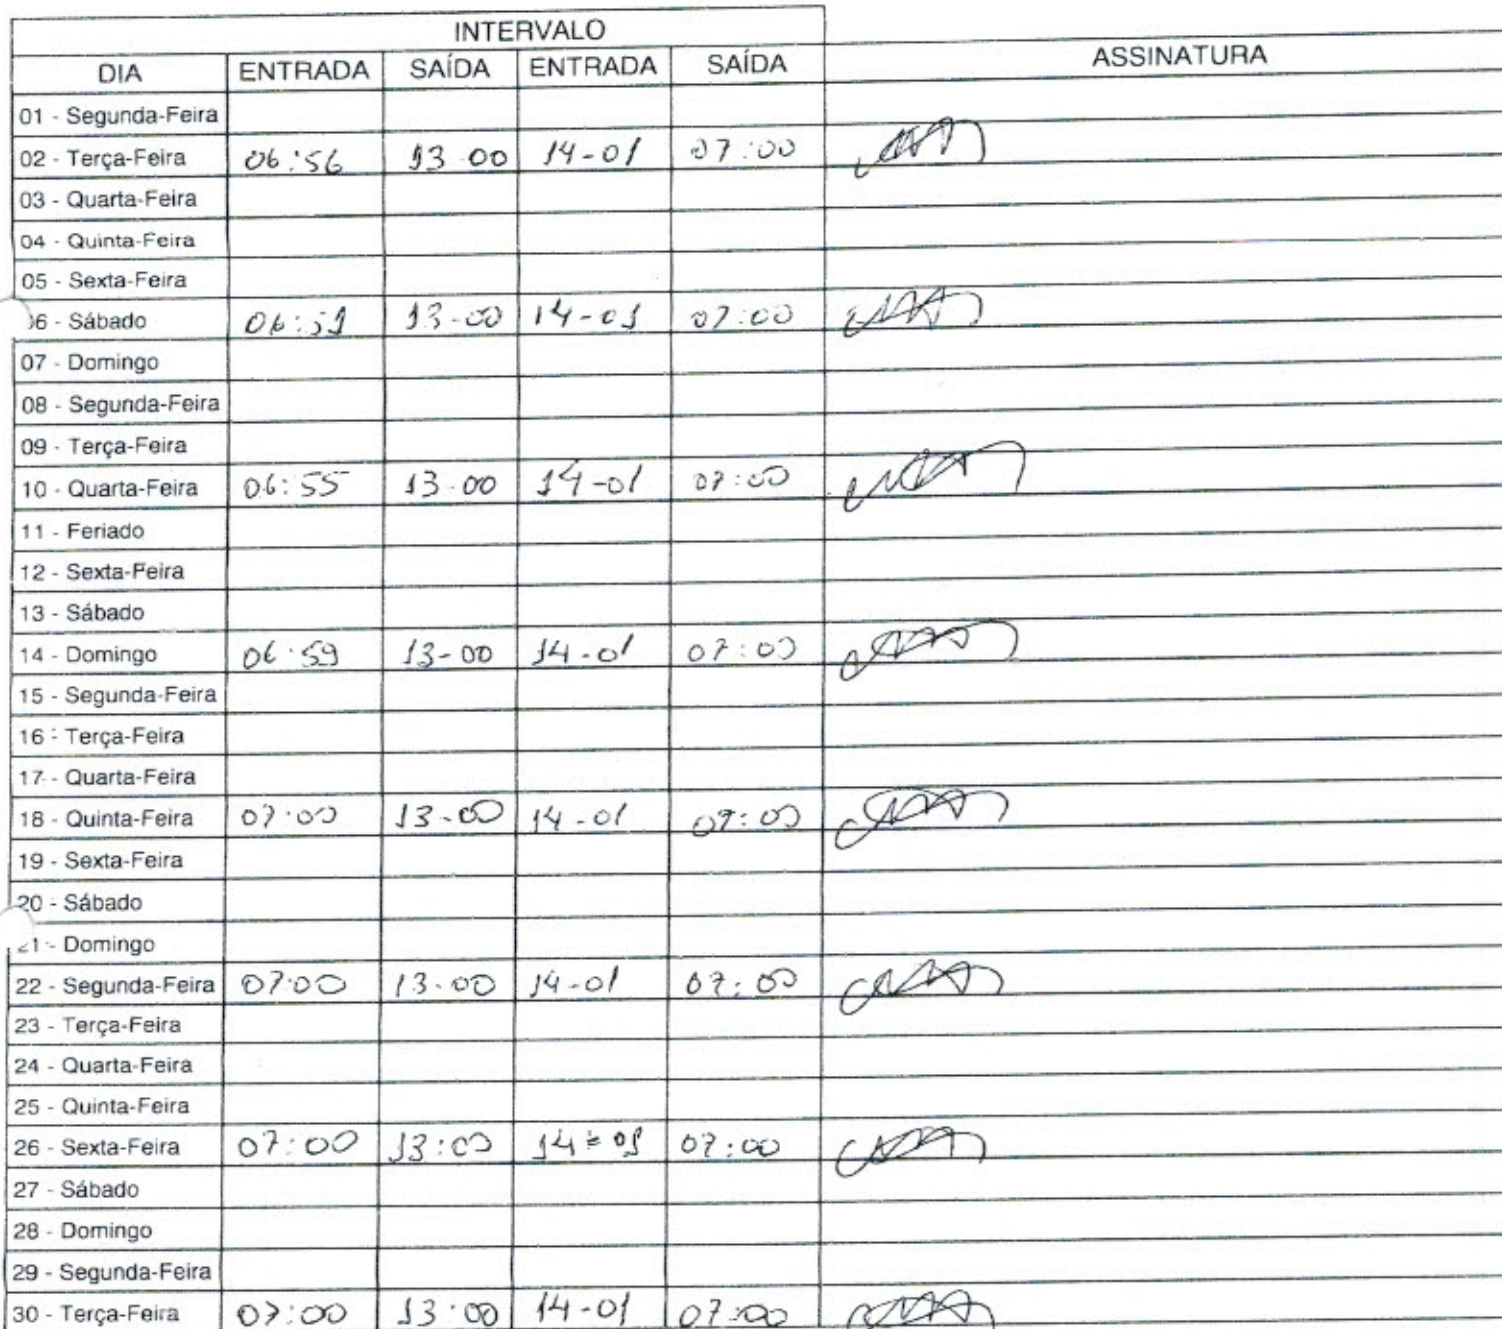 INTERVALO
DIA ENTRADA SAÍDA ENTRADA SAÍDA ASSINATURA
01 - Segunda-Feira
02 - Terça-Feira 06:56 13.00 14-01 07:00
03 - Quarta-Feira
04 - Quinta-Feira
05 - Sexta-Feira
06 - Sábado 06:51 13-00 14-01 07:00
07 - Domingo
08 - Segunda-Feira
09 - Terça-Feira
10 - Quarta-Feira 06:55 13.00 14-01 07:00
11 - Feriado
12 - Sexta-Feira
13 - Sábado
14 - Domingo 06:59 13-00 14-01 07:00
15 - Segunda-Feira
16 - Terça-Feira
17 - Quarta-Feira
18 - Quinta-Feira 07:00 13-00 14-01 07:00
19 - Sexta-Feira
20 - Sábado
21 - Domingo
22 - Segunda-Feira 07:00 13-00 14-01 07:00
23 - Terça-Feira
24 - Quarta-Feira
25 - Quinta-Feira
26 - Sexta-Feira 07:00 13:00 14-01 07:00
27 - Sábado
28 - Domingo
29 - Segunda-Feira
30 - Terça-Feira 07:00 13:00 14-01 07:00